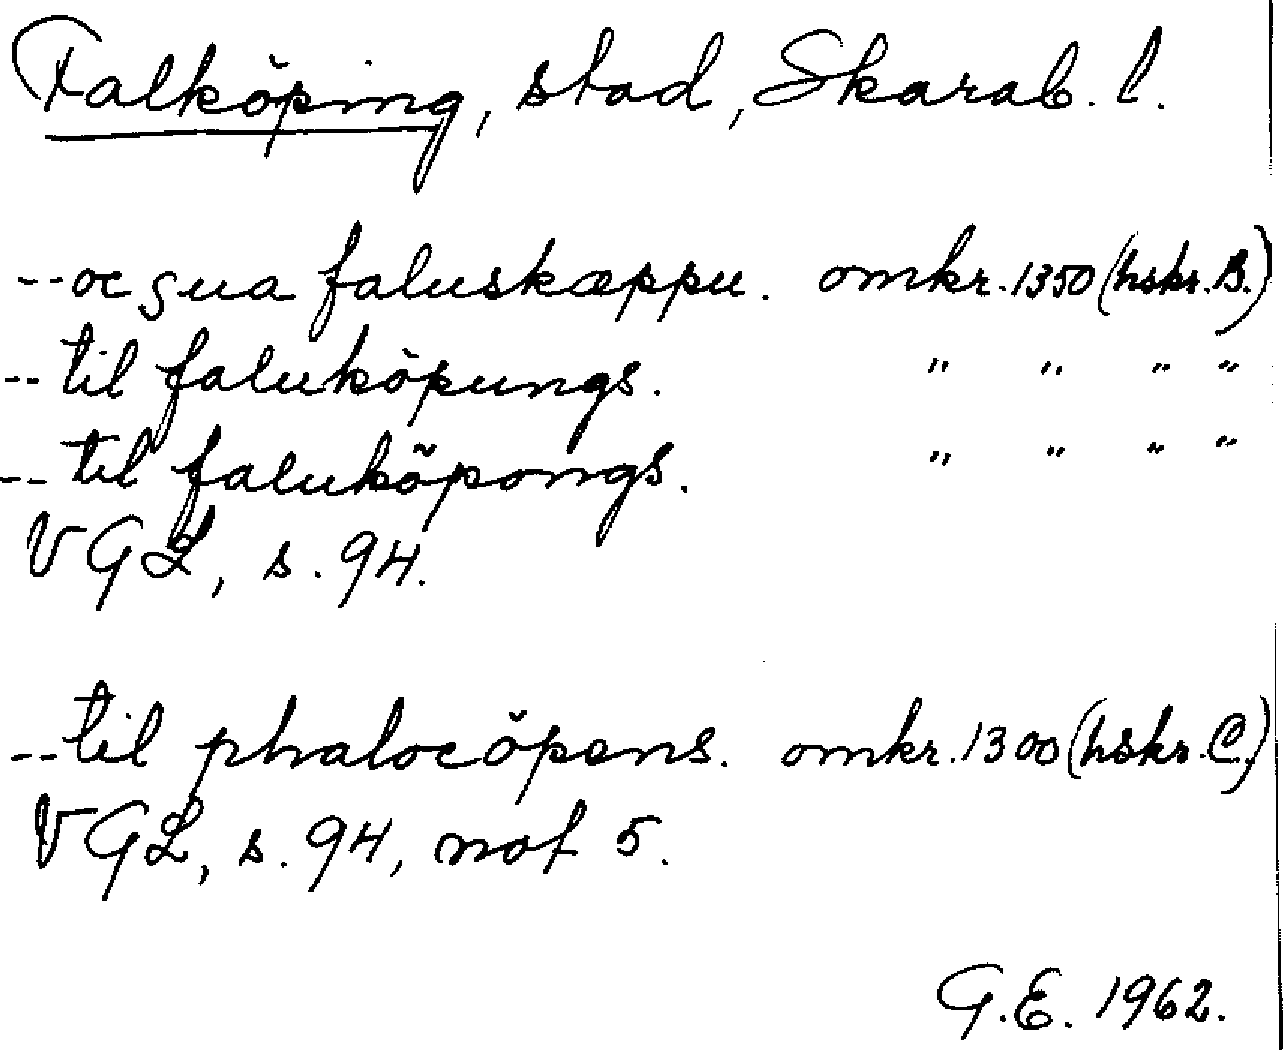 Falköping, stad, Skarab. l.
-- oc sua faluskæppu. omkr. 1350 (hskr. B.)
-- til faluköpungs. " " " "
-- til faluköpongs. " " " "
VGL, s. 94.
-- til phalocöpens. omkr. 1300 (hskr. C.)
VGL, s. 94, not 5.
G.E. 1962.